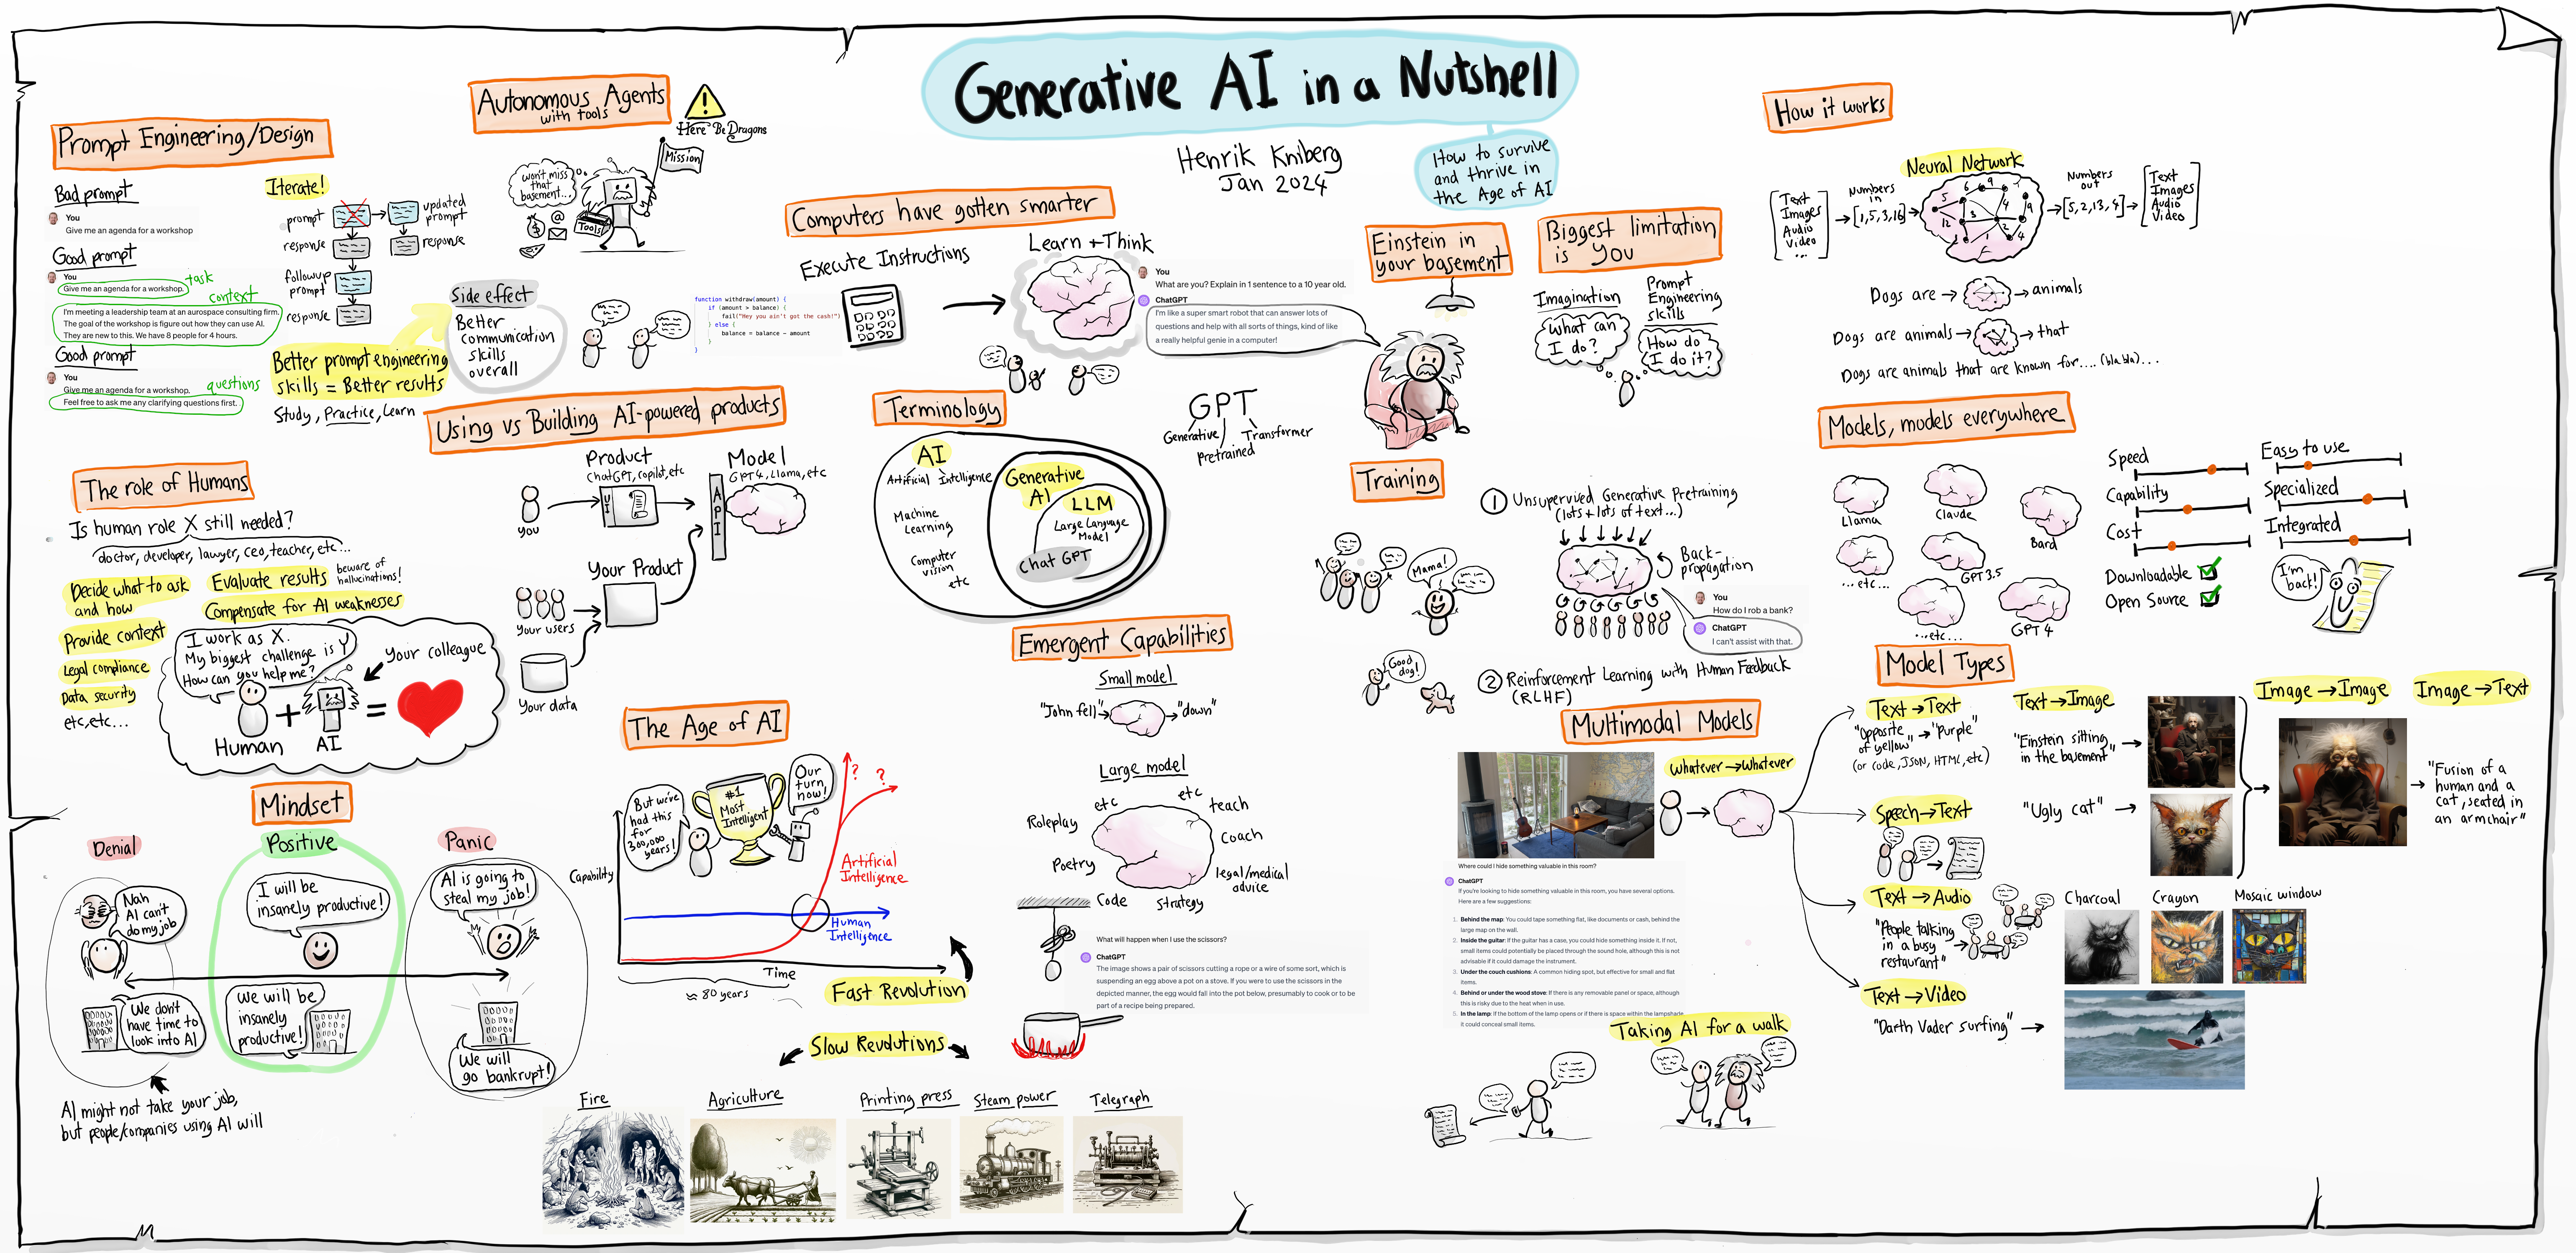 Generative AI in a Nutshell
Henrik Kniberg
Jan 2024
How to survive
and thrive in
the Age of AI
Computers have gotten smarter
Execute Instructions
Learn + Think
function withdraw(amount) {
if (amount > balance) {
fail("Hey you ain't got the cash!")
} else {
balance = balance - amount
}
}
You
What are you? Explain in 1 sentence to a 10 year old.
ChatGPT
I'm like a super smart robot that can answer lots of
questions and help with all sorts of things, kind of like
a really helpful genie in a computer!
Einstein in
your basement
Biggest limitation
is you
Imagination
What can
I do?
Prompt
Engineering
skills
How do
I do it?
How it works
Text
Images
Audio
Video
...
Numbers
in
[1,5,3,16]
Neural Network
5
6
9
7
4
9
12
3
1
2
4
Numbers
out
[5,2,13,4]
Text
Images
Audio
Video
Dogs are
animals
Dogs are animals
that
Dogs are animals that are known for.... (bla bla)...
Models, models everywhere
Llama
Claude
Bard
...etc...
GPT 3.5
...etc...
GPT 4
Speed
Capability
Cost
Downloadable
Open Source
Easy to use
Specialized
Integrated
I'm
back!
Model Types
Text→Text
"Opposite
of yellow" → "Purple"
(or code, JSON, HTML, etc)
Text→Image
"Einstein sitting
in the basement"
"Ugly cat"
Image→Image
Image→Text
"Fusion of a
human and a
cat, seated in
an armchair"
Charcoal
Crayon
Mosaic window
Speech→Text
Text→Audio
"People talking
in a busy
restaurant"
Text→Video
"Darth Vader surfing"
Multimodal Models
whatever→whatever
Where could I hide something valuable in this room?
ChatGPT
If you're looking to hide something valuable in this room, you have several options.
Here are a few suggestions:
1. Behind the map: You could tape something flat, like documents or cash, behind the
large map on the wall.
2. Inside the guitar: If the guitar has a case, you could hide something inside it. If not,
small items could potentially be placed through the sound hole, although this is not
advisable if it could damage the instrument.
3. Under the couch cushions: A common hiding spot, but effective for small and flat
items.
4. Behind or under the wood stove: If there is any removable panel or space, although
this is risky due to the heat when in use.
5. In the lamp: If the bottom of the lamp opens or if there is space within the lampshade,
it could conceal small items.
Taking AI for a walk
Training
1 Unsupervised Generative Pretraining
(lots + lots of text...)
Back-
propagation
Mama!
You
How do I rob a bank?
ChatGPT
I can't assist with that.
Good
dog!
2 Reinforcement Learning with Human Feedback
(RLHF)
Terminology
GPT
Generative
pretrained
Transformer
AI
Artificial Intelligence
Machine
Learning
Computer
vision
etc
Generative
AI
LLM
Large Language
Model
Chat GPT
Emergent Capabilities
Small model
"John fell"
"down"
Large model
etc
etc
teach
Roleplay
Coach
Poetry
legal/medical
advice
Code
Strategy
What will happen when I use the scissors?
ChatGPT
The image shows a pair of scissors cutting a rope or a wire of some sort, which is
suspending an egg above a pot on a stove. If you were to use the scissors in the
depicted manner, the egg would fall into the pot below, presumably to cook or to be
part of a recipe being prepared.
The Age of AI
But we've
had this
for
300,000
years!
#1
Most
Intelligent
Our
turn
now!
?
?
Capability
Artificial
Intelligence
Human
Intelligence
Time
≈ 80 years
Fast Revolution
Slow Revolutions
Fire
Agriculture
Printing press
Steam power
Telegraph
Using vs Building AI-powered products
Product
ChatGPT, copilot, etc
Model
GPT4, Llama, etc
You
UI
API
Your Product
Your users
Your data
Autonomous Agents
with tools
!
Here Be Dragons
Mission
won't miss
that
basement...
$
@
Tools
Prompt Engineering/Design
Bad prompt
You
Give me an agenda for a workshop
Good prompt
You
Give me an agenda for a workshop.
task
context
I'm meeting a leadership team at an aerospace consulting firm.
The goal of the workshop is figure out how they can use AI.
They are new to this. We have 8 people for 4 hours.
Good prompt
You
Give me an agenda for a workshop.
questions
Feel free to ask me any clarifying questions first.
Iterate!
prompt
updated
prompt
response
response
followup
prompt
response
Better prompt engineering
skills = Better results
Study, Practice, Learn
Side effect
Better
communication
skills
overall
The role of Humans
Is human role X still needed?
doctor, developer, lawyer, ceo, teacher, etc...
Decide what to ask
and how
Evaluate results
beware of
hallucinations!
Compensate for AI weaknesses
Provide context
Legal compliance
Data security
etc,etc...
I work as X.
My biggest challenge is Y
How can you help me?
Your colleague
+
=
Human
AI
Mindset
Denial
Positive
Panic
Nah
AI can't
do my job
I will be
insanely productive!
AI is going to
steal my job!
We don't
have time to
look into AI
We will be
insanely
productive!
We will
go bankrupt!
AI might not take your job,
but people/companies using AI will